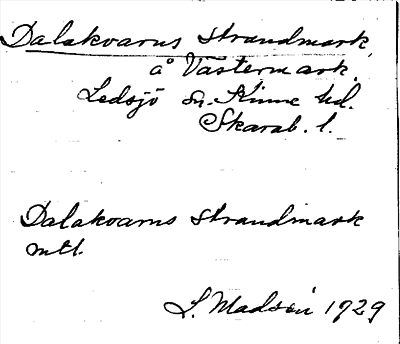 Dalakvarns strandmark,
å Västermark,
Ledsjö sn. Kinne hd.
Skarab. l.
Dalakvarns strandmark
mtl.
L. Madsén 1929